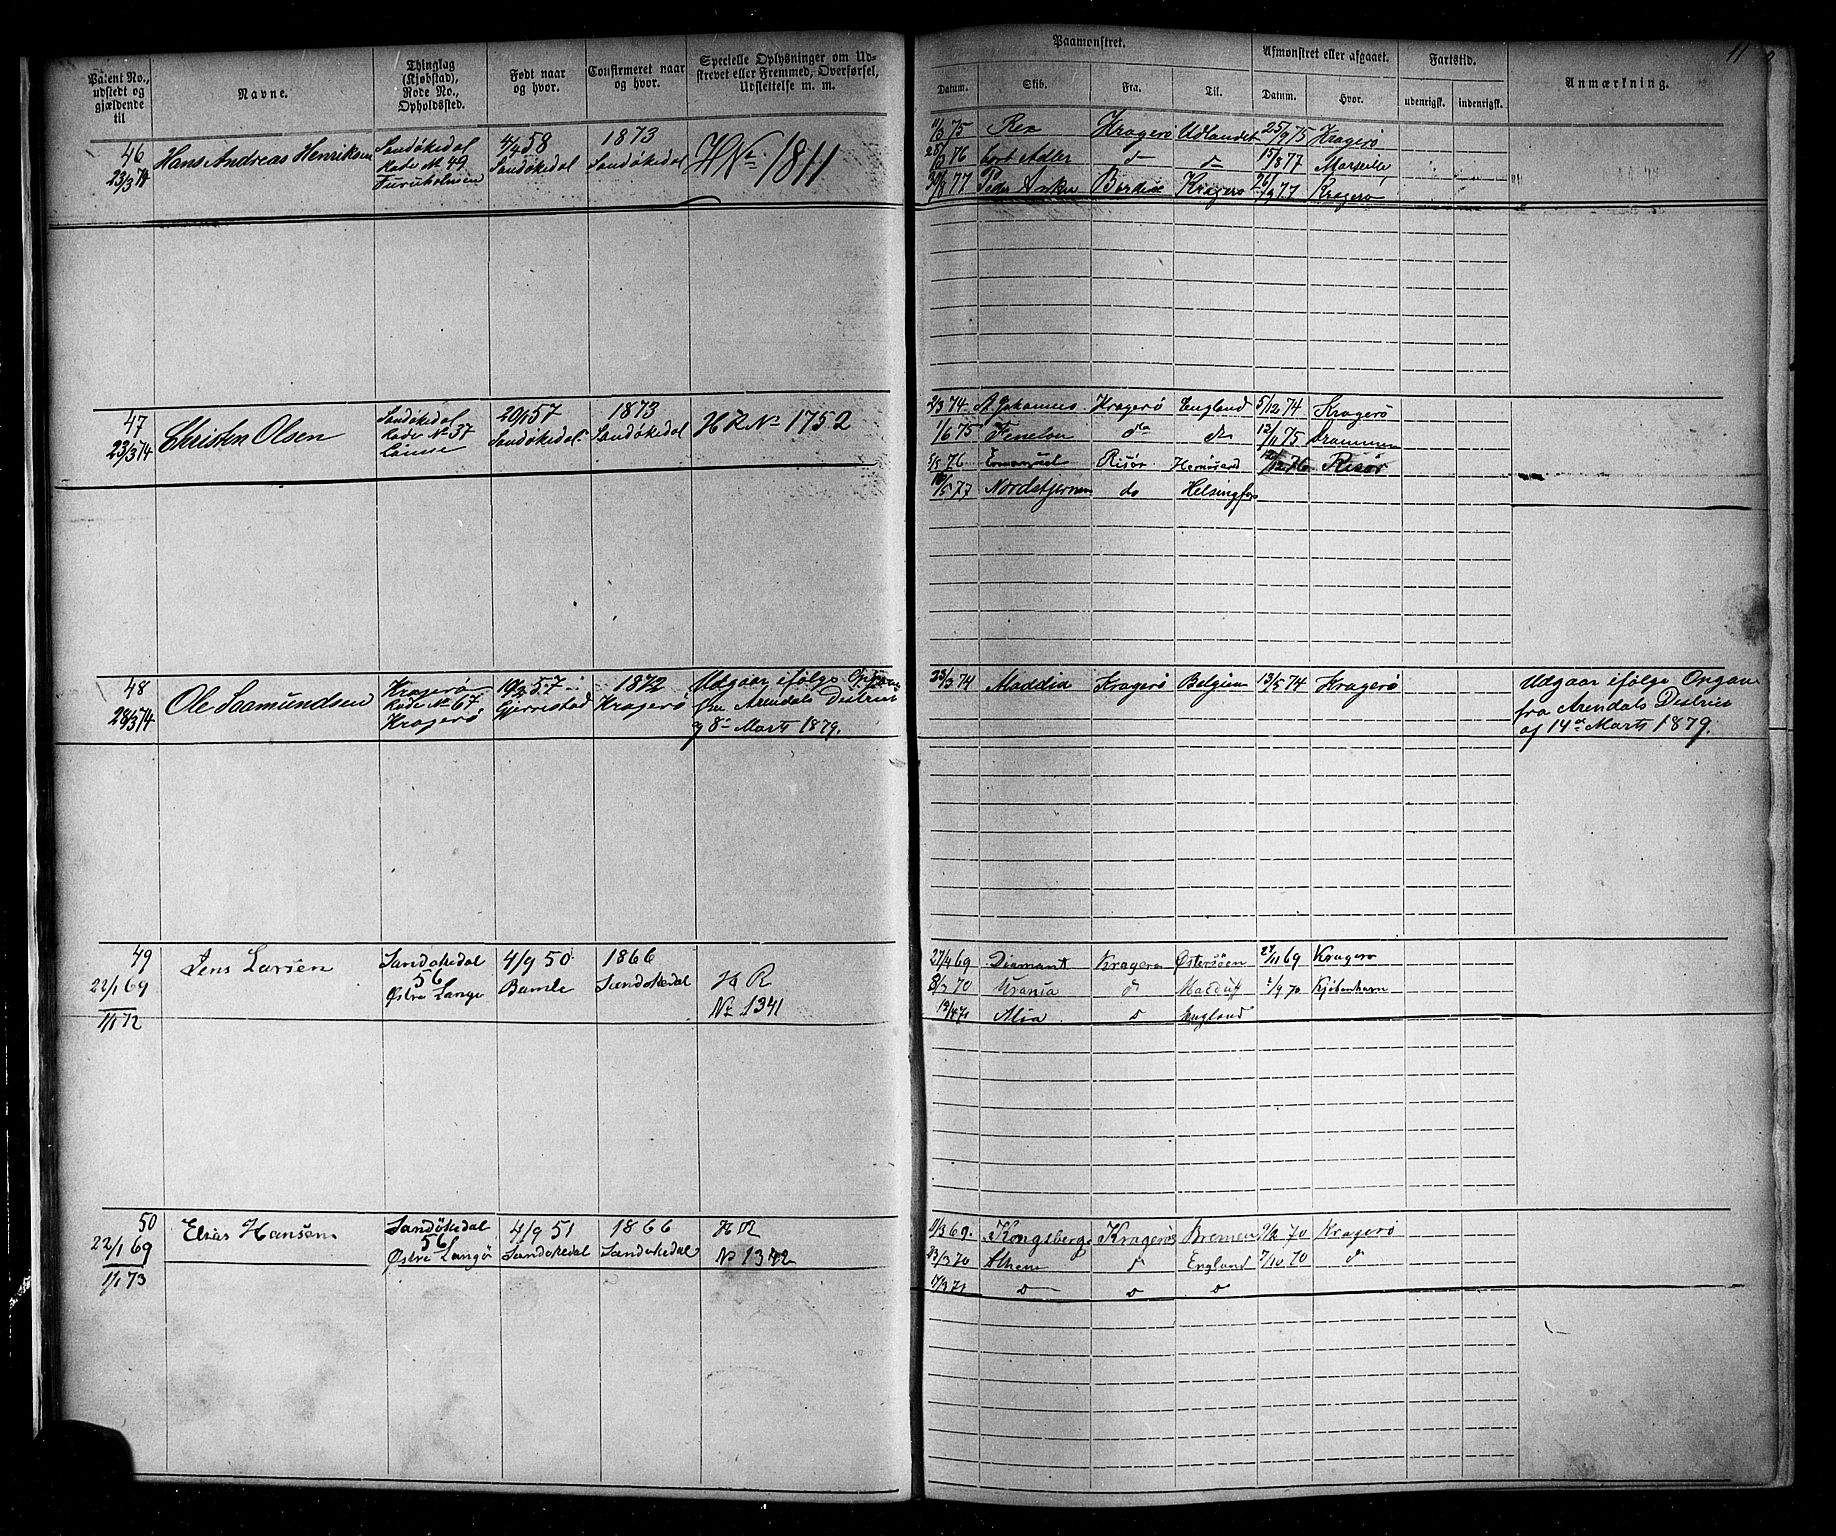 Patent No., udstedt og gjældende til
Navne.
Thinglag (Kjøbstad), Rode No., Opholdssted.
Født naar og hvor.
Confirmeret naar og hvor.
Specielle Oplysninger om Udskrevet eller Fremmed, Overførsel, Udslettelse m. m.
Paamønstret.
Datum.
Skib.
Fra.
Til.
Afmønstret eller afgaaet.
Datum.
Hvor.
Fartstid.
udenrigsk.
indenrigsk.
Anmærkning.
11
46
23/3 74
Hans Andreas Henriksen
Sandökedal
Rode No 49
Furuholmen
4/4 58
Sandökedal
1873
Sandökedal
H No 1811
11/3 75 Rex Kragerö Udlandet 25/9 75 Kragerö
25/3 76 Cort Adler d d 15/8 77 Marseille
30/8 77 Peder Anker Kragerö 21/9 77 Kragerö
47
23/3 74
Christen Olsen
Sandökedal
Rode No 37
20/1 57
Sandökedal
1873
Sandökedal
H R No 1752
2/3 74 St. Johannes Kragerö England 5/12 74 Kragerö
1/6 75 Fenelon do do 12/11 75 Drammen
5/5 76 Emanuel Risør Hernösand 12/12 76 Risør
10/5 77 Nordstjernen do Helsingfors
48
28/3 74
Ole Saamundsen
Kragerö
Rode No 67
Kragerö
19/2 57
Gjerrestad
1872
Kragerö
Udgaar ifölge Opgave
fra Arendals District
af 8de Marts 1879.
23/3 74 Kragerö Belgien 13/5 74 Kragerö
Udgaar ifölge Opgave
fra Arendals District
af 14de Marts 1879.
49
22/1 69
1/1 72
Jens Larsen
Sandökedal
56
Østre Langø
4/9 50
Bamle
1866
Sandökedal
H R
No 1341
27/4 69 Diamant Kragerø Østersöen 27/11 69 Kragerø
8/3 70 Urania d Macduff 1/9 70 Kjöbenhavn
13/4 71 d England
50
22/1 69
1/1 73
Elias Hansen
Sandökedal
56
Østre Langø
4/9 51
Sandökedal
1866
Sandökedal
H R
No 1342
11/3 69 Kongsberg Kragerö Bremen 9/2 70 Kragerö
23/3 70 Athene d England 7/10 70 d
17/3 71 d d d